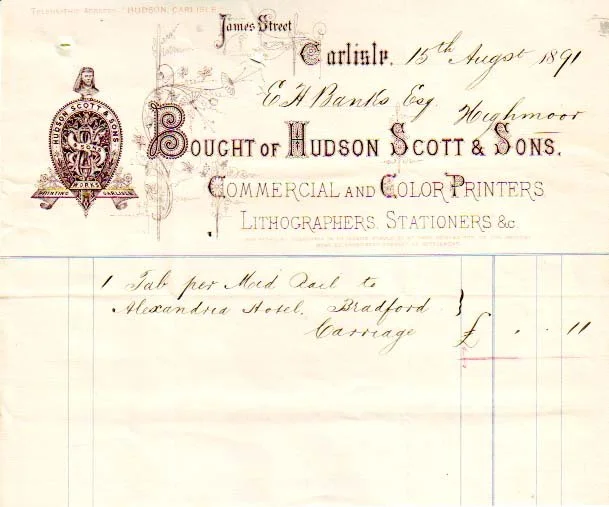 TELEGRAPHIC ADDRESS "HUDSON, CARLISLE"
James Street
Carlisle, 15th Augst 1891
E H Banks Esq
Highmoor
BOUGHT OF HUDSON SCOTT & SONS.
HUDSON SCOTT & SONS
WORKS
PRINTING CARLISLE
COMMERCIAL AND COLOR PRINTERS
LITHOGRAPHERS, STATIONERS &c.
1 Tab per Mid Rail to
Alexandria Hotel, Bradford
Carriage £ " " 11